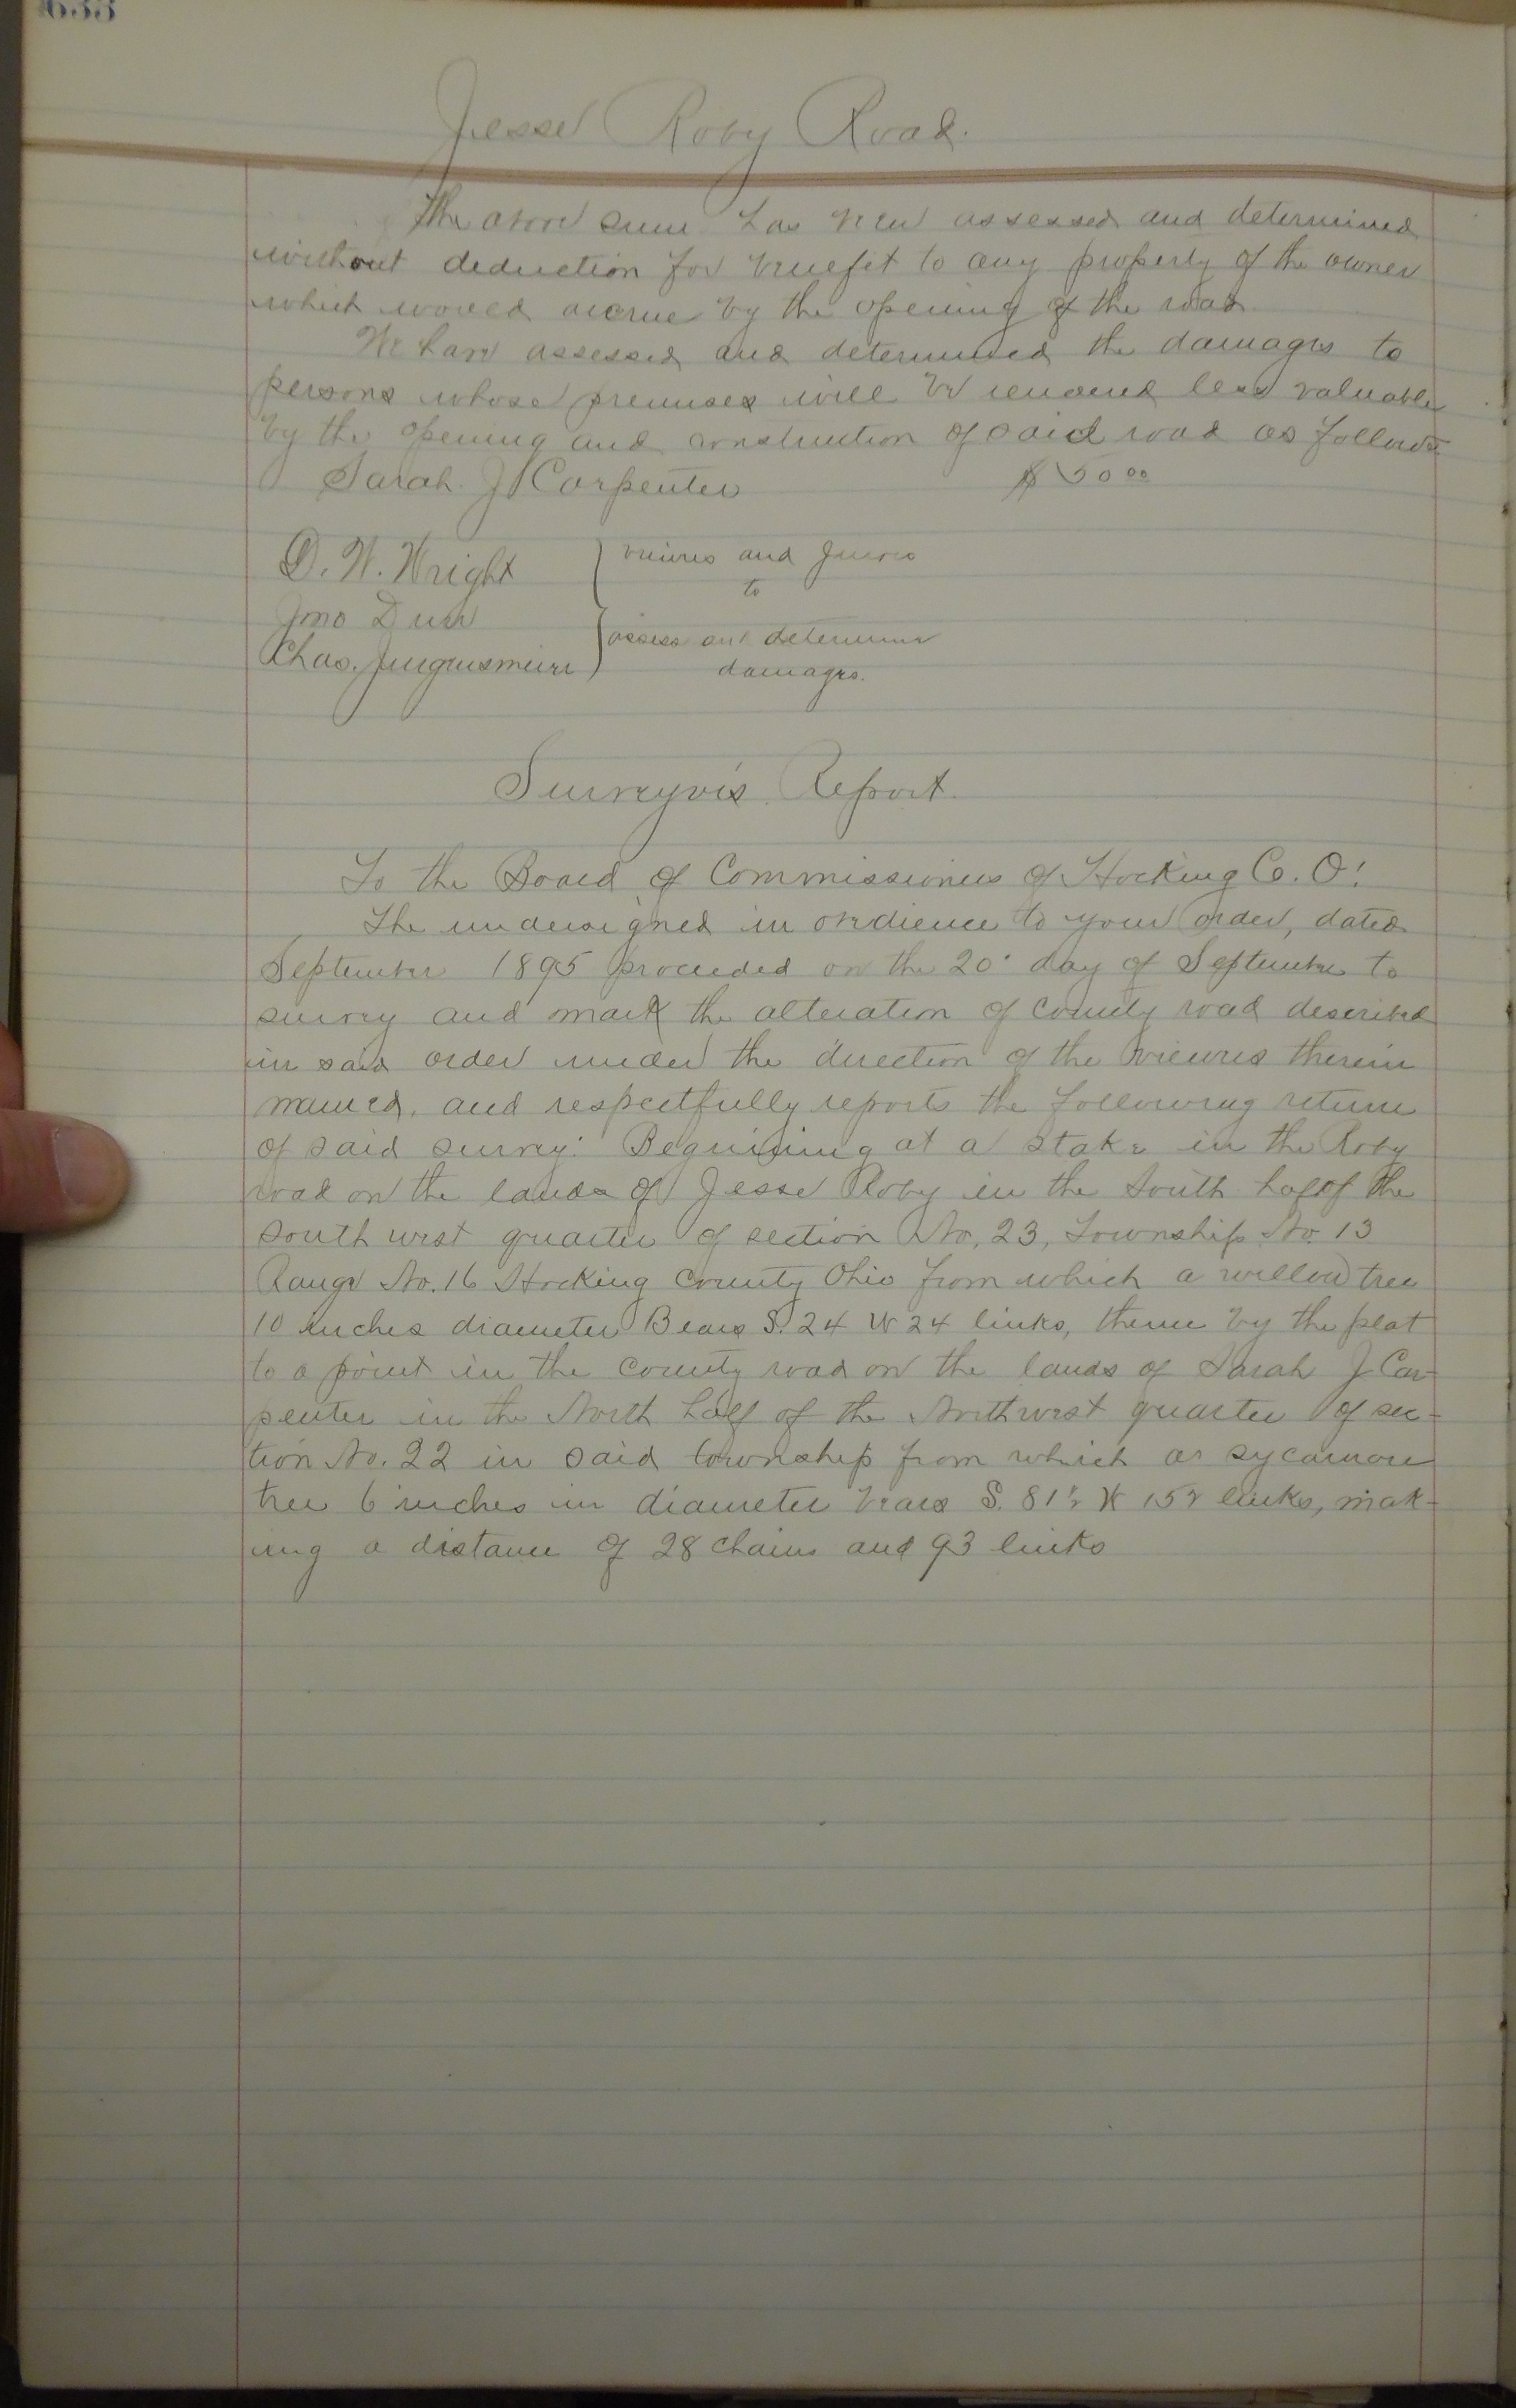 Jesse Roby Road.
The above sum has been assessed and determined
without deduction for benefit to any property of the owner
which would accrue by the opening of the road
We have assessed and determined the damages to
persons whose premises will be rendered less valuable
by the opening and construction of said road as follows
Sarah. J Carpenter $50 00
D. W. Wright
viewers and Jurors
to
Jno
assess and determine
Chas.
damages.
Surveyor's Report.
To the Board of Commissioners of Hocking Co. O!
The undersigned in obedience to your order, dated
September 1895 proceeded on the 20" day of September to
survey and mark the alteration of county road described
in said order under the direction of the viewers therein
named, and respectfully reports the following return
of said survey: Beginning at a stake in the Roby
road on the lands of Jesse Roby in the South half of the
south west quarter of section No. 23, Township No. 13
Range No. 16 Hocking County Ohio from which a willow tree
10 inches diameter Bears S. 24 W 24 links, thence by the plat
to a point in the county road on the lands of Sarah J Car-
penter in the North half of the Northwest quarter of sec-
tion No. 22 in said township from which a sycamore
tree 6 inches in diameter bears S. 81½ W links, mak-
ing a distance of 28 chains and 93 links